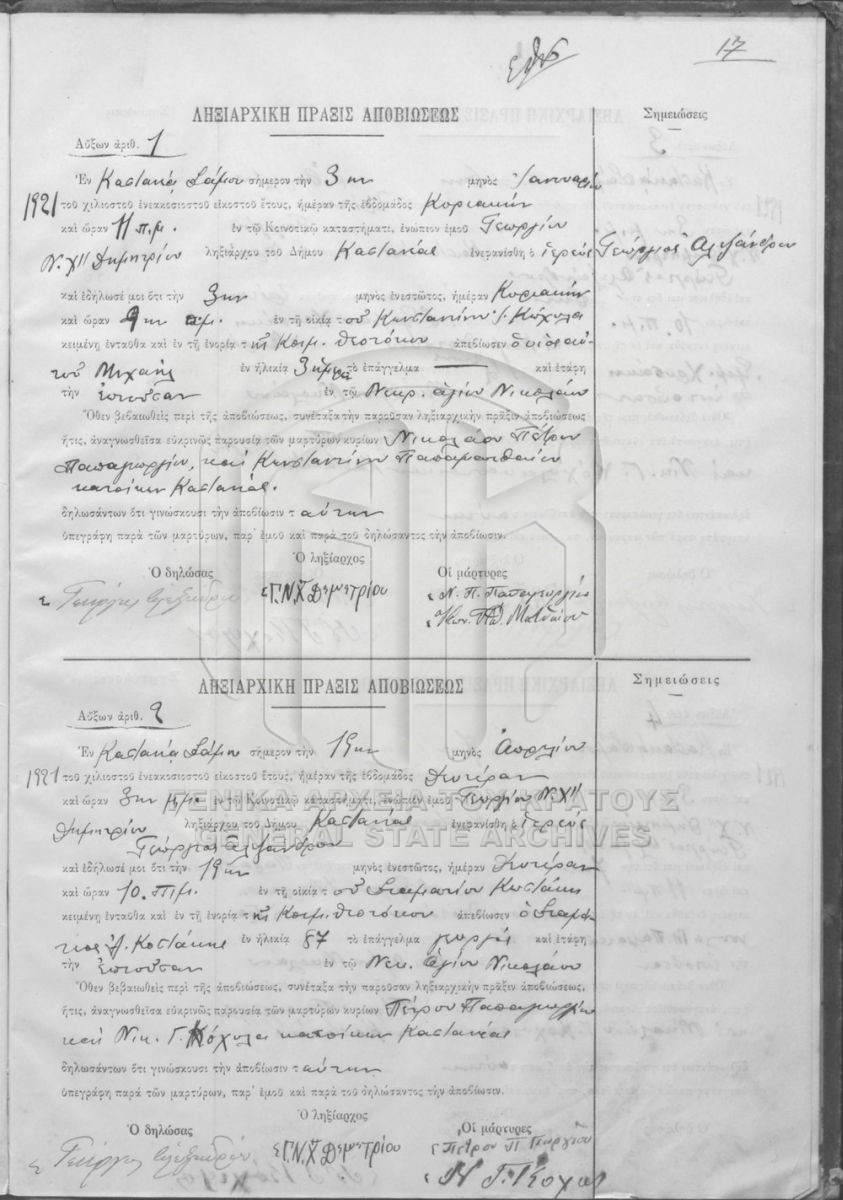 17
ΛΗΞΙΑΡΧΙΚΗ ΠΡΑΞΙΣ ΑΠΟΒΙΩΣΕΩΣ
Σημειώσεις
Αὔξων ἀριθ. 1
Ἐν Καστανέᾳ Σάμου σήμερον τὴν 3ην μηνὸς Ἰανουαρίου
1921 τοῦ χιλιοστοῦ ἐνεακοσιοστοῦ εἰκοστοῦ ἔτους, ἡμέραν τῆς ἑβδομάδος Κυριακὴν
καὶ ὥραν 11 π.μ. ἐν τῷ Κοινοτικῷ καταστήματι, ἐνώπιον ἐμοῦ Γεωργίου
Ν. Χ΄΄ Δημητρίου ληξιάρχου τοῦ Δήμου Καστανέας ἐνεφανίσθη ὁ ἱερεὺς Γεώργιος Ἀλεξάνδρου
καὶ ἐδήλωσέ μοι ὅτι τὴν 3ην μηνὸς ἐνεστῶτος, ἡμέραν Κυριακὴν
καὶ ὥραν 9ην π.μ. ἐν τῇ οἰκίᾳ τοῦ Κωνσταντίνου Κόχυλα
κειμένῃ ἐνταῦθα καὶ ἐν τῇ ἐνορίᾳ τῆς Κοιμ. Θεοτόκου ἀπεβίωσεν ὁ υἱὸς αὐ-
τοῦ Μιχαὴλ ἐν ἡλικίᾳ 3 ἡμερῶν τὸ ἐπάγγελμα — καὶ ἐτάφη
τὴν ἐπιοῦσαν ἐν τῷ Νεκρ. ἁγίου Νικολάου
Ὅθεν βεβαιωθεὶς περὶ τῆς ἀποβιώσεως, συνέταξα τὴν παροῦσαν ληξιαρχικὴν πρᾶξιν ἀποβιώσεως
ἥτις, ἀναγνωσθεῖσα εὐκρινῶς παρουσίᾳ τῶν μαρτύρων κυρίων Νικολάου Πέτρου
Παπαγεωργίου, καὶ Κωνσταντίνου Παπαματθαίου
κατοίκων Καστανέας.
δηλωσάντων ὅτι γινώσκουσι τὴν ἀποβίωσιν ταύτην
ὑπεγράφη παρὰ τῶν μαρτύρων, παρ' ἐμοῦ καὶ παρὰ τοῦ δηλώσαντος τὴν ἀποβίωσιν.
Ὁ δηλώσας Ὁ ληξίαρχος Οἱ μάρτυρες
Γεώργιος Ἀλεξάνδρου Γ.Ν.Χ΄΄ Δημητρίου Ν. Π. Παπαγεωργίου
Κων. Παπ. Ματθαίου
ΛΗΞΙΑΡΧΙΚΗ ΠΡΑΞΙΣ ΑΠΟΒΙΩΣΕΩΣ
Σημειώσεις
Αὔξων ἀριθ. 2
Ἐν Καστανέᾳ Σάμου σήμερον τὴν 19ην μηνὸς Ἀπριλίου
1921 τοῦ χιλιοστοῦ ἐνεακοσιοστοῦ εἰκοστοῦ ἔτους, ἡμέραν τῆς ἑβδομάδος Δευτέραν
καὶ ὥραν 3ην μ.μ. ἐν τῷ Κοινοτικῷ καταστήματι, ἐνώπιον ἐμοῦ Γεωργίου Ν. Χ΄΄
Δημητρίου ληξιάρχου τοῦ Δήμου Καστανέας ἐνεφανίσθη ὁ ἱερεὺς
Γεώργιος Ἀλεξάνδρου
ΓΕΝΙΚΑ ΑΡΧΕΙΑ ΤΟΥ ΚΡΑΤΟΥΣ
GENERAL STATE ARCHIVES
καὶ ἐδήλωσέ μοι ὅτι τὴν 19ην μηνὸς ἐνεστῶτος, ἡμέραν Δευτέραν
καὶ ὥραν 10. π.μ. ἐν τῇ οἰκίᾳ τοῦ Σταματίου Κωστάκη
κειμένῃ ἐνταῦθα καὶ ἐν τῇ ἐνορίᾳ τῆς Κοιμ. Θεοτόκου ἀπεβίωσεν ὁ Σταμά-
τιος Κωστάκης ἐν ἡλικίᾳ 87 τὸ ἐπάγγελμα γεωργὸς καὶ ἐτάφη
τὴν ἐπιοῦσαν ἐν τῷ Νεκ. Ἁγίου Νικολάου
Ὅθεν βεβαιωθεὶς περὶ τῆς ἀποβιώσεως, συνέταξα τὴν παροῦσαν ληξιαρχικὴν πρᾶξιν ἀποβιώσεως,
ἥτις, ἀναγνωσθεῖσα εὐκρινῶς παρουσίᾳ τῶν μαρτύρων κυρίων Πέτρου Παπαγεωργίου
καὶ Νικ. Γ. Κόχυλα κατοίκων Καστανέας
δηλωσάντων ὅτι γινώσκουσι τὴν ἀποβίωσιν ταύτην
ὑπεγράφη παρὰ τῶν μαρτύρων, παρ' ἐμοῦ καὶ παρὰ τοῦ δηλώσαντος τὴν ἀποβίωσιν.
Ὁ δηλώσας Ὁ ληξίαρχος Οἱ μάρτυρες
Γεώργιος Ἀλεξάνδρου Γ.Ν.Χ΄΄ Δημητρίου Πέτρου Π Γεωργίου
Ν Γ. Κόχυλας